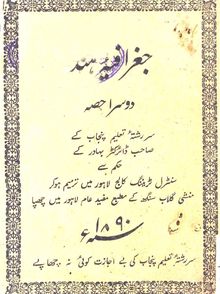 جغرافیۂ ہند
دوسرا حصہ
سررشتۂ تعلیم پنجاب کے
صاحب ڈائرکٹر بہادر کے
حکم سے
سنٹرل ٹریننگ کالج لاہور میں ترمیم ہوکر
منشی گلاب سنگھ کے مطبع مفید عام لاہور میں چھپا
۱۸۹۰ء
سررشتۂ تعلیم پنجاب کی بے اجازت کوئی نہ چھاپے